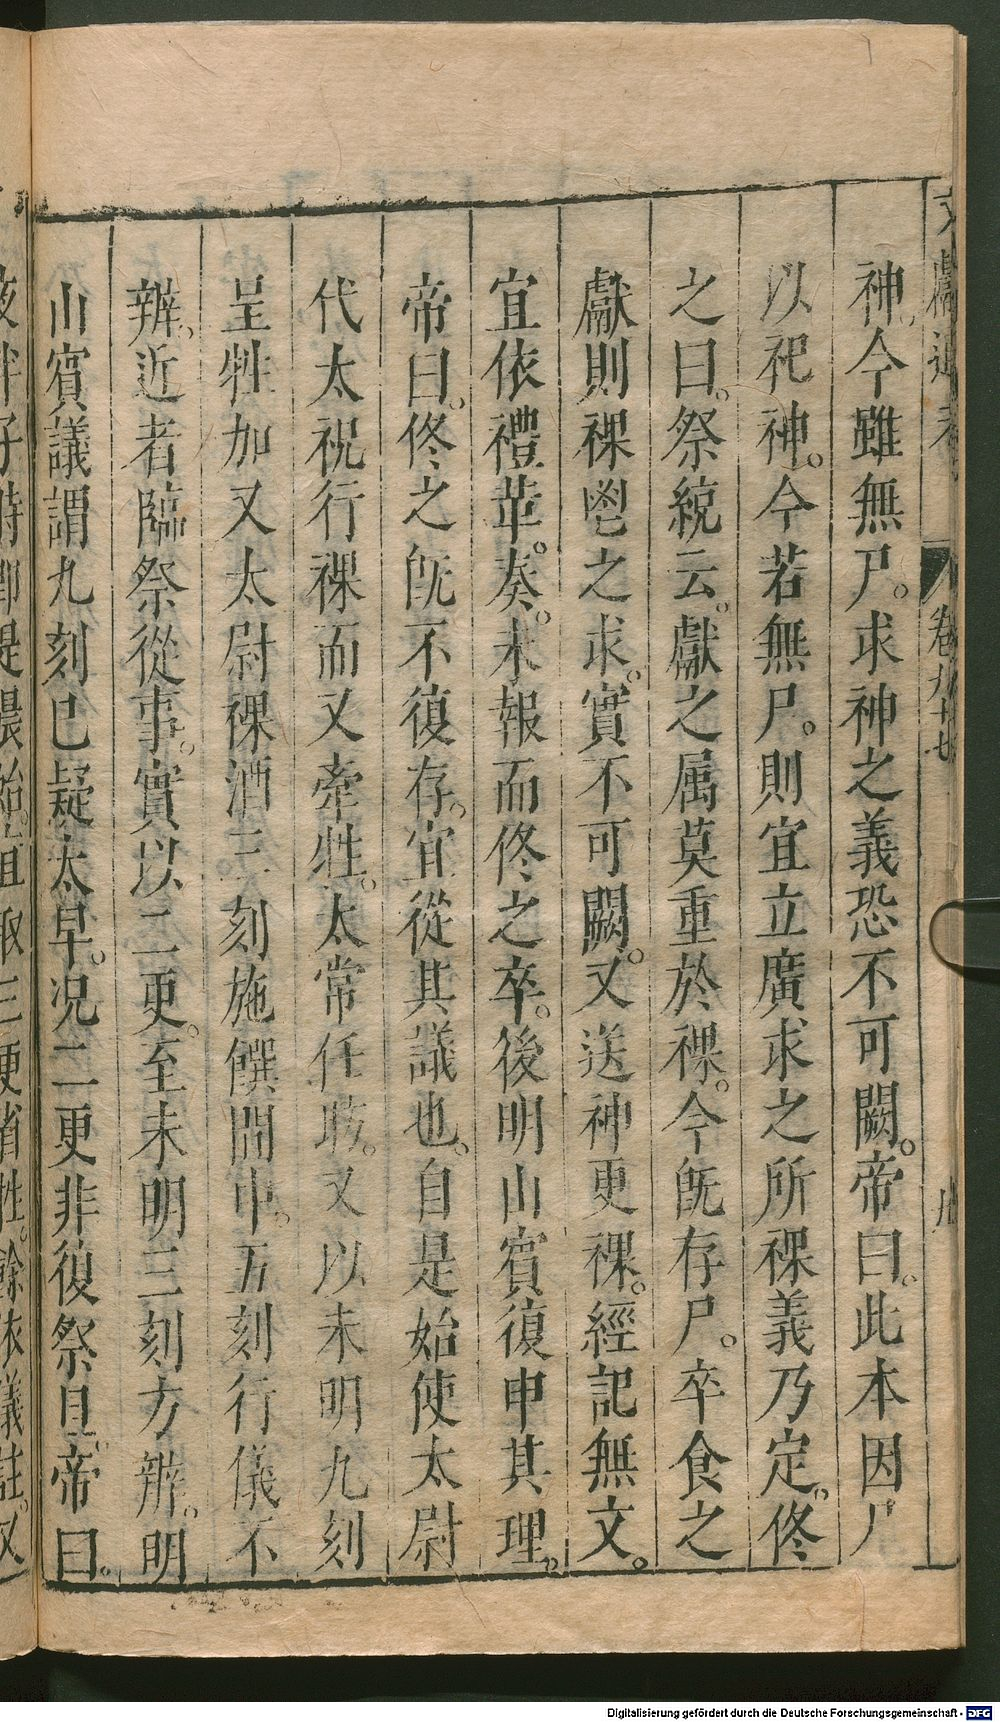 文獻通考 卷九十七
神今雖無尸。求神之義恐不可闕。帝曰。此本因尸
以祀神。今若無尸。則宜立廣求之所祼義乃定。佟
之曰。祭統云。獻之属莫重於祼。今既存尸。卒食之
獻則祼鬯之求。實不可闕。又送神更祼。經記無文。
宜依禮革。奏。未報而佟之卒。後明山賓復申其理。
帝曰。佟之既不復存。宜從其議也。自是始使太尉
代太祝行祼而又牽牲。太常任昉。又以未明九刻
呈牲加又太尉祼酒三刻施饌間中。五刻行儀不
辨。近者臨祭從事。實以二更。至未明三刻方辨。明
山賓議謂九刻巳疑太早。况二更非復祭旦。帝曰。
Digitalisierung gefördert durch die Deutsche Forschungsgemeinschaft - DFG